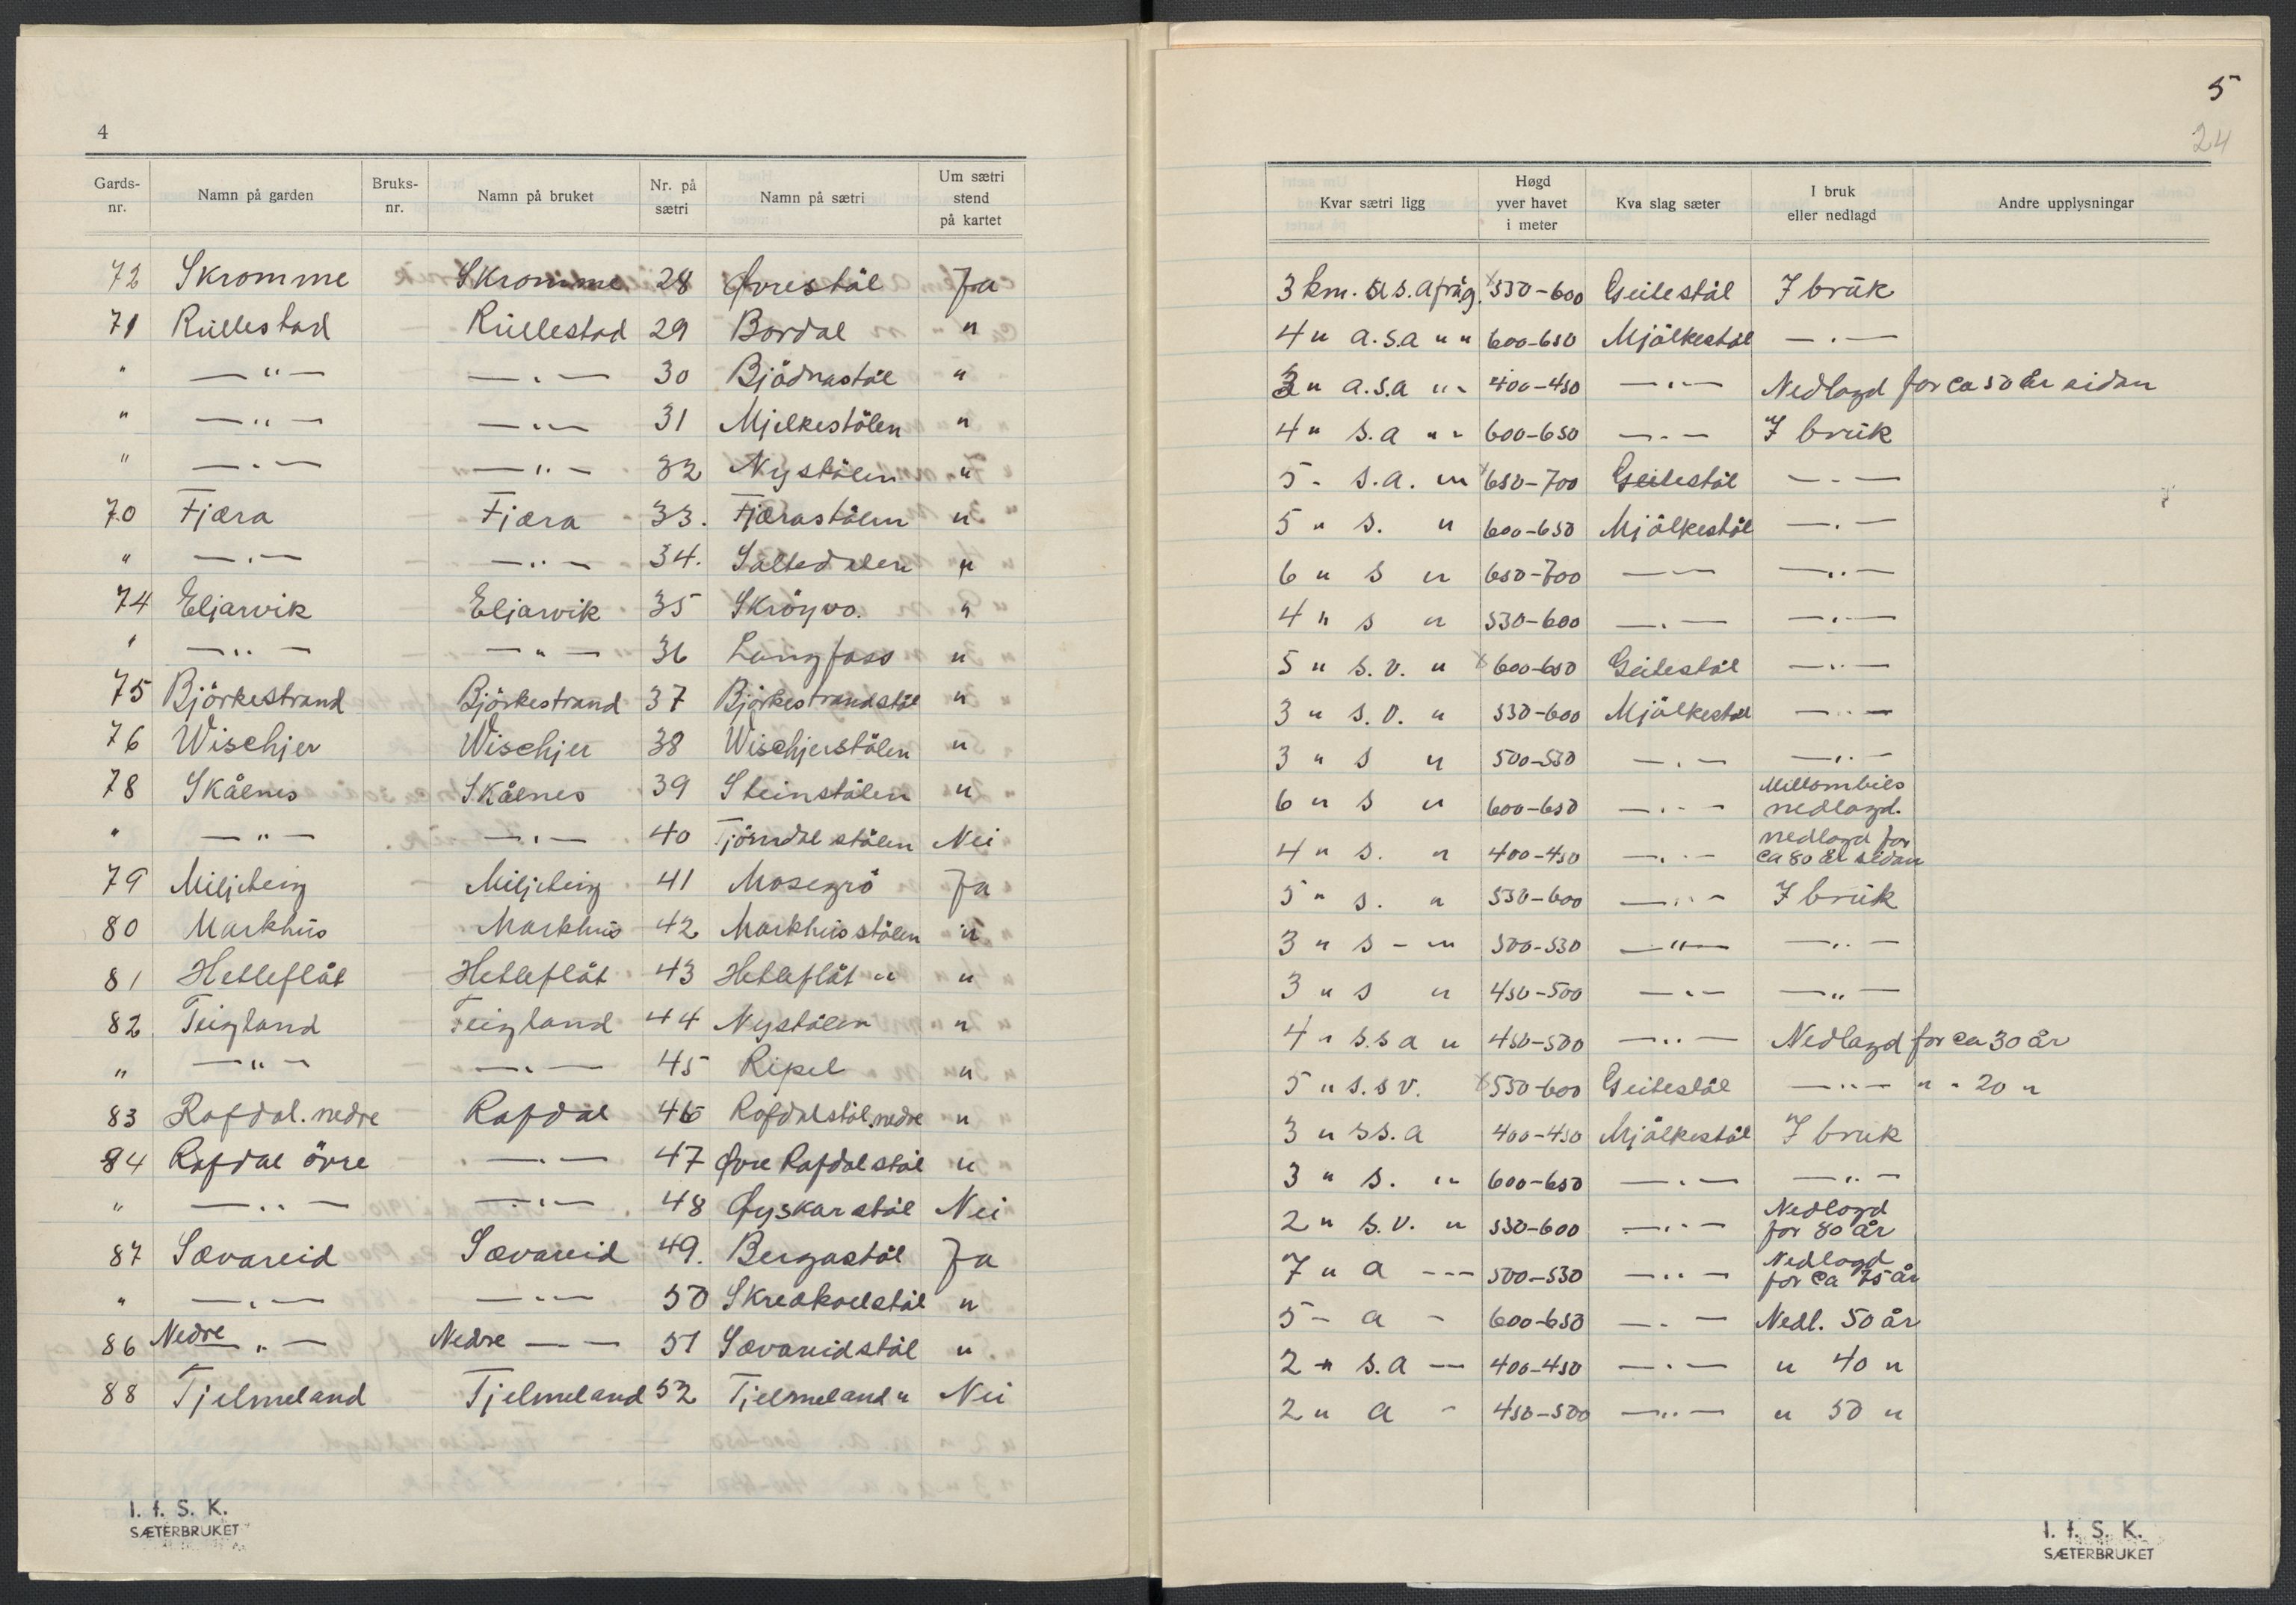 4
Gards-nr. Namn på garden Bruks-nr. Namn på bruket Nr. på sætri Namn på sætri Um sætri stend på kartet
72 Skromme Skromme 28 Øvrestøl Ja
71 Rullestad Rullestad 29 Bordal "
" — " — — " — 30 Bjödnastöl "
" — " — — " — 31 Mjelkestölen "
" — " — — " — 32 Nystölen "
70 Fjæra Fjæra 33. Fjærastölen "
" — " — — " — 34. Saltedalen "
74 Eljarvik Eljarvik 35 Skröyvo. "
" — " — — " — 36 Langfoss "
75 Björkestrand Björkestrand 37 Björkestrandstöl "
76 Wischjer Wischjer 38 Wischjerstölen "
78 Skålnes Skålnes 39 Steinstölen "
" — " — — " — 40 Tjörndalstölen Nei
79 Miljeteig Miljeteig 41 Mosegrö Ja
80 Markhus Markhus 42 Markhusstölen "
81 Hetleflåt Hetleflåt 43 Hetleflåt " "
82 Teigland Teigland 44 Nystölen "
" — " — — " — 45 Ripel "
83 Rafdal. nedre Rafdal 46 Rafdalstöl. nedre "
84 Rafdal övre — " — 47 Øvre Rafdalstöl "
" — " — — " — 48 Øyskarstöl Nei
87 Sævareid Sævareid 49. Bergastöl Ja
" — " — — " — 50 "
86 Nedre " — Nedre — — 51 Sævareidstöl "
88 Tjelmeland Tjelmeland 52 Tjelmeland " Nei
I. f. S. K.
SÆTERBRUKET
5
24
Kvar sætri ligg Høgd yver havet i meter Kva slag sæter I bruk eller nedlagd Andre upplysningar
3 km. s.s.a frå g. x 550-600 Geitestöl I bruk
4 " a.s.a " " 600-650 Mjölkestöl — " —
3 " a.s.a " " 400-450 — " — Nedlagd for ca 50 år sidan
4 " s.a " " 600-650 — " — I bruk
5 " s.a. " x 650-700 Geitestöl — " —
5 " s. " 600-650 Mjölkestöl — " —
6 " s " 650-700 — — — " —
4 " s " 550-600 — " — — " —
5 " s.v. " x 600-650 Geitestöl — " —
3 " s.v. " 550-600 Mjölkestöl — " —
3 " s " 500-550 — " — — " —
6 " s " 600-650 — " — Millombils nedlagd.
4 " s. " 400-450 — " — nedlagd for ca 80 år sidan
5 " s. " 550-600 — " — I bruk
3 " s - " 500-550 — " — — " —
3 " s " 450-500 — " — — " —
4 " s.s a " 450-500 — " — Nedlagd for ca 30 år
5 " s.s v. x 550-600 Geitestöl — " — " " 20 "
3 " s s. a 400-450 Mjölkestöl I bruk
3 " s. " 600-650 — " — — " —
2 " s.v. " 550-600 — " — Nedlagd for 80 år
7 " a - - - 500-550 — " — Nedlagd for ca 75 år
5 - a - 600-650 — " — Nedl. 50 år
2 " s.a — 400-450 — " — " 40 "
2 " a - 450-500 — " — " 50 "
I. f. S. K.
SÆTERBRUKET